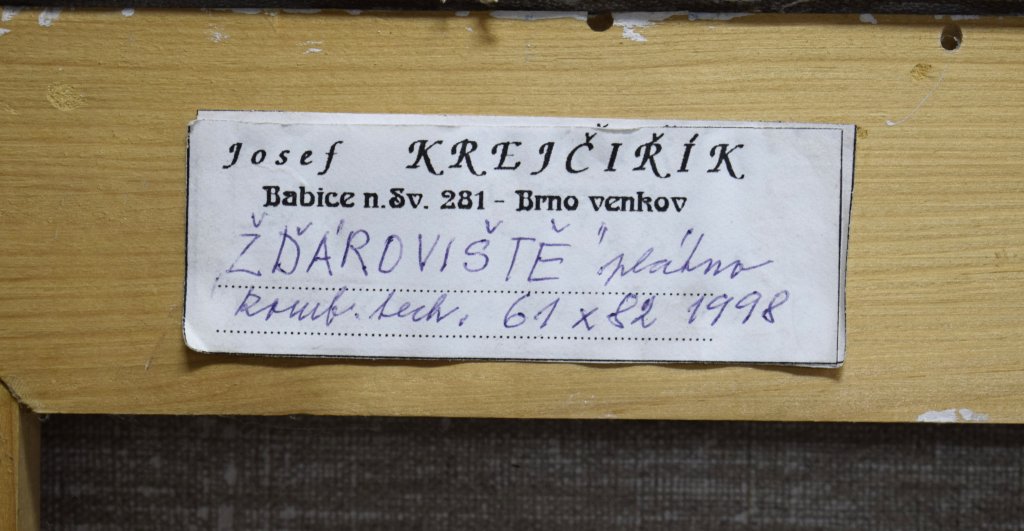 Josef KREJČIŘÍK
Babice n.Sv. 281 - Brno venkov
„ŽĎÁROVIŠTĚ" plátno
komb. tech. 61 x 82 1998